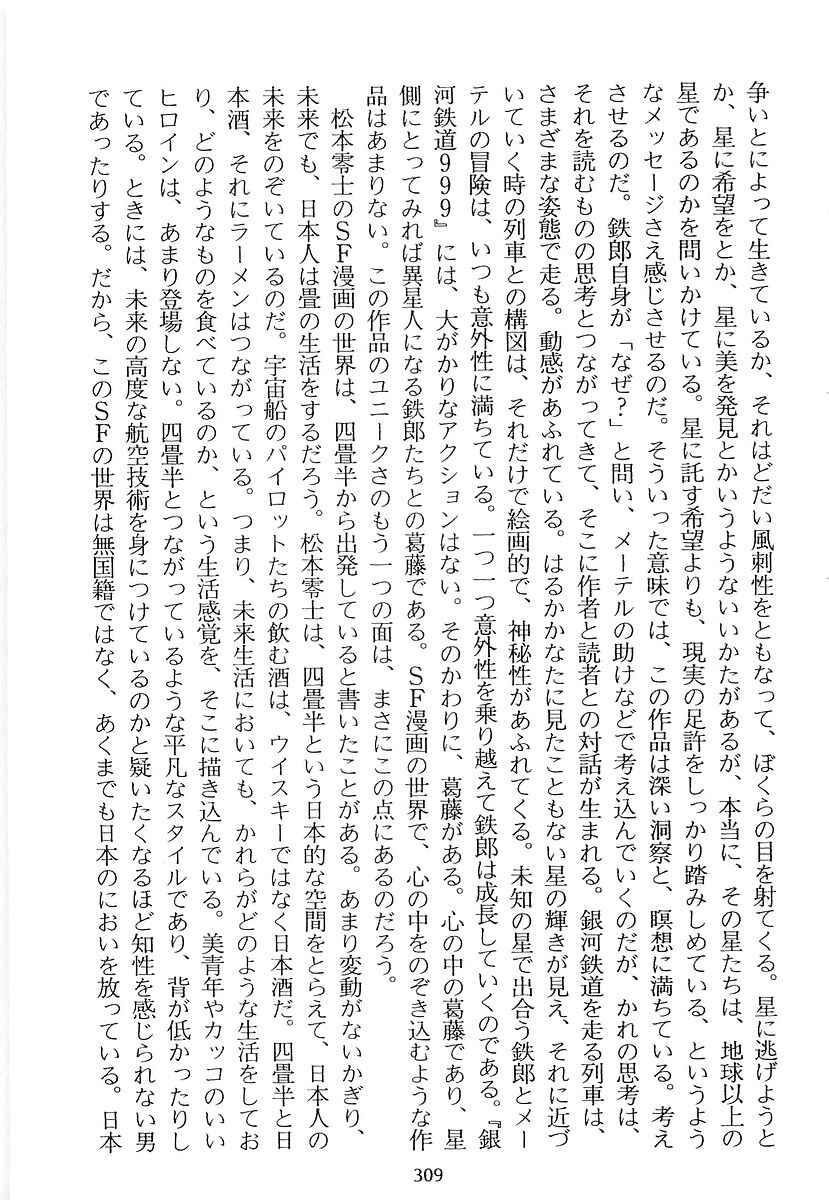 争いとによって生きているか、それはどだい風刺性をともなって、ぼくらの目を射てくる。星に逃げようと
か、星に希望をとか、星に美を発見とかいうようないいかたがあるが、本当に、その星たちは、地球以上の
星であるのかを問いかけている。星に託す希望よりも、現実の足許をしっかり踏みしめている、というよう
なメッセージさえ感じさせるのだ。そういった意味では、この作品は深い洞察と、瞑想に満ちている。考え
させるのだ。鉄郎自身が「なぜ?」と問い、メーテルの助けなどで考え込んでいくのだが、かれの思考は、
それを読むものの思考とつながってきて、そこに作者と読者との対話が生まれる。銀河鉄道を走る列車は、
さまざまな姿態で走る。動感があふれている。はるかかなたに見たこともない星の輝きが見え、それに近づ
いていく時の列車との構図は、それだけで絵画的で、神秘性があふれてくる。未知の星で出合う鉄郎とメー
テルの冒険は、いつも意外性に満ちている。一つ一つ意外性を乗り越えて鉄郎は成長していくのである。『銀
河鉄道999』には、大がかりなアクションはない。そのかわりに、葛藤がある。心の中の葛藤であり、星
側にとってみれば異星人になる鉄郎たちとの葛藤である。SF漫画の世界で、心の中をのぞき込むような作
品はあまりない。この作品のユニークさのもう一つの面は、まさにこの点にあるのだろう。
松本零士のSF漫画の世界は、四畳半から出発していると書いたことがある。あまり変動がないかぎり、
未来でも、日本人は畳の生活をするだろう。松本零士は、四畳半という日本的な空間をとらえて、日本人の
未来をのぞいているのだ。宇宙船のパイロットたちの飲む酒は、ウイスキーではなく日本酒だ。四畳半と日
本酒、それにラーメンはつながっている。つまり、未来生活においても、かれらがどのような生活をしてお
り、どのようなものを食べているのか、という生活感覚を、そこに描き込んでいる。美青年やカッコのいい
ヒロインは、あまり登場しない。四畳半とつながっているような平凡なスタイルであり、背が低かったりし
ている。ときには、未来の高度な航空技術を身につけているのかと疑いたくなるほど知性を感じられない男
であったりする。だから、このSFの世界は無国籍ではなく、あくまでも日本のにおいを放っている。日本
309